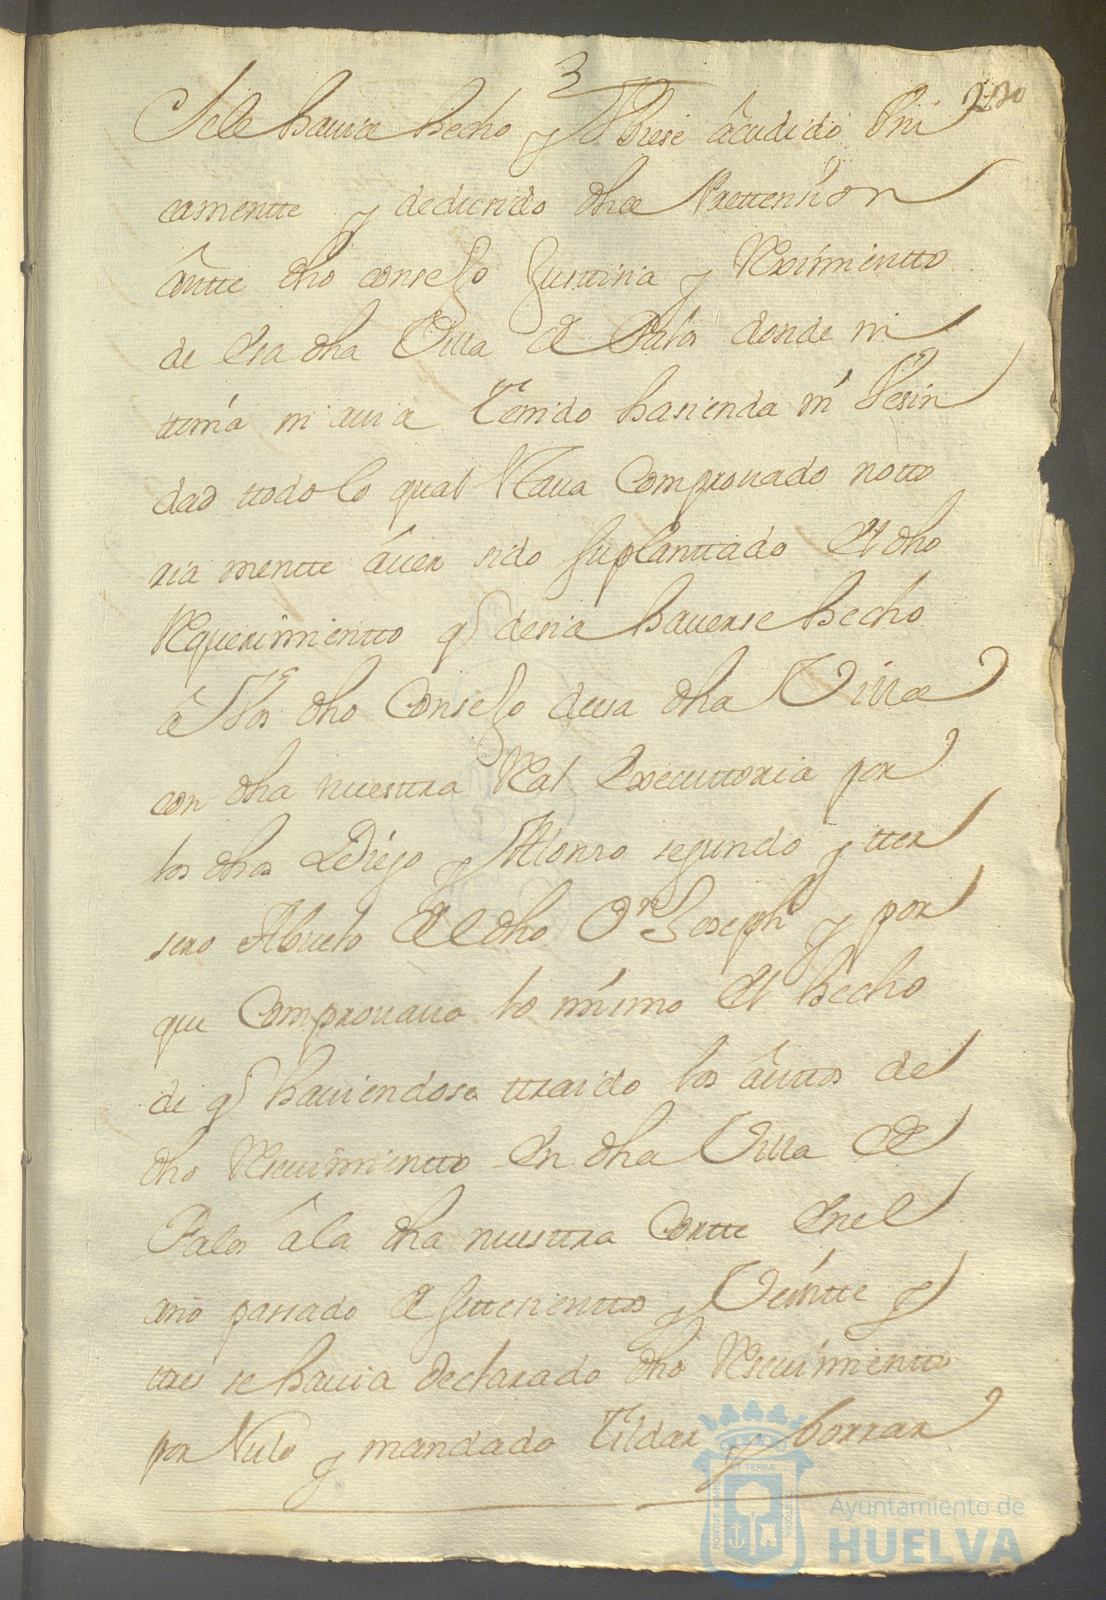 3
230
Sele havia hecho y haverse acudido Uni
camentte y deducido dha Prettension
ântte dho consejo Justtisia y Reximientto
de esa dha Villa de Palos donde ni
ttenia ni avia Tenido hasienda ni Vesin
dad ttodo lo qual comprouado notto
riamentte âuer sido suplanttado el dho
Requerimientto q desia hauerse hecho
â Vos dho Consejo deesa dha Villa
con dha nuesttra Real Executtoria por
los dhos Diego y Alonso segundo y tter
sero Abuelo del dho Dn Joseph y por
que comprouaua lo mismo el hecho
de q hauiendose ttraido los âuttos de
dho Reseuimientto en dha Villa de
Palos âla dha nuesttra Cortte enel
año passado de settesienttos y Veintte y
ttres se hauia declarado dho Reseuimientto
por Nulo y mandado Tildar y borrar
PORTUS MARIS ET TERRÆ CUSTODIA
Ayuntamiento de
HUELVA